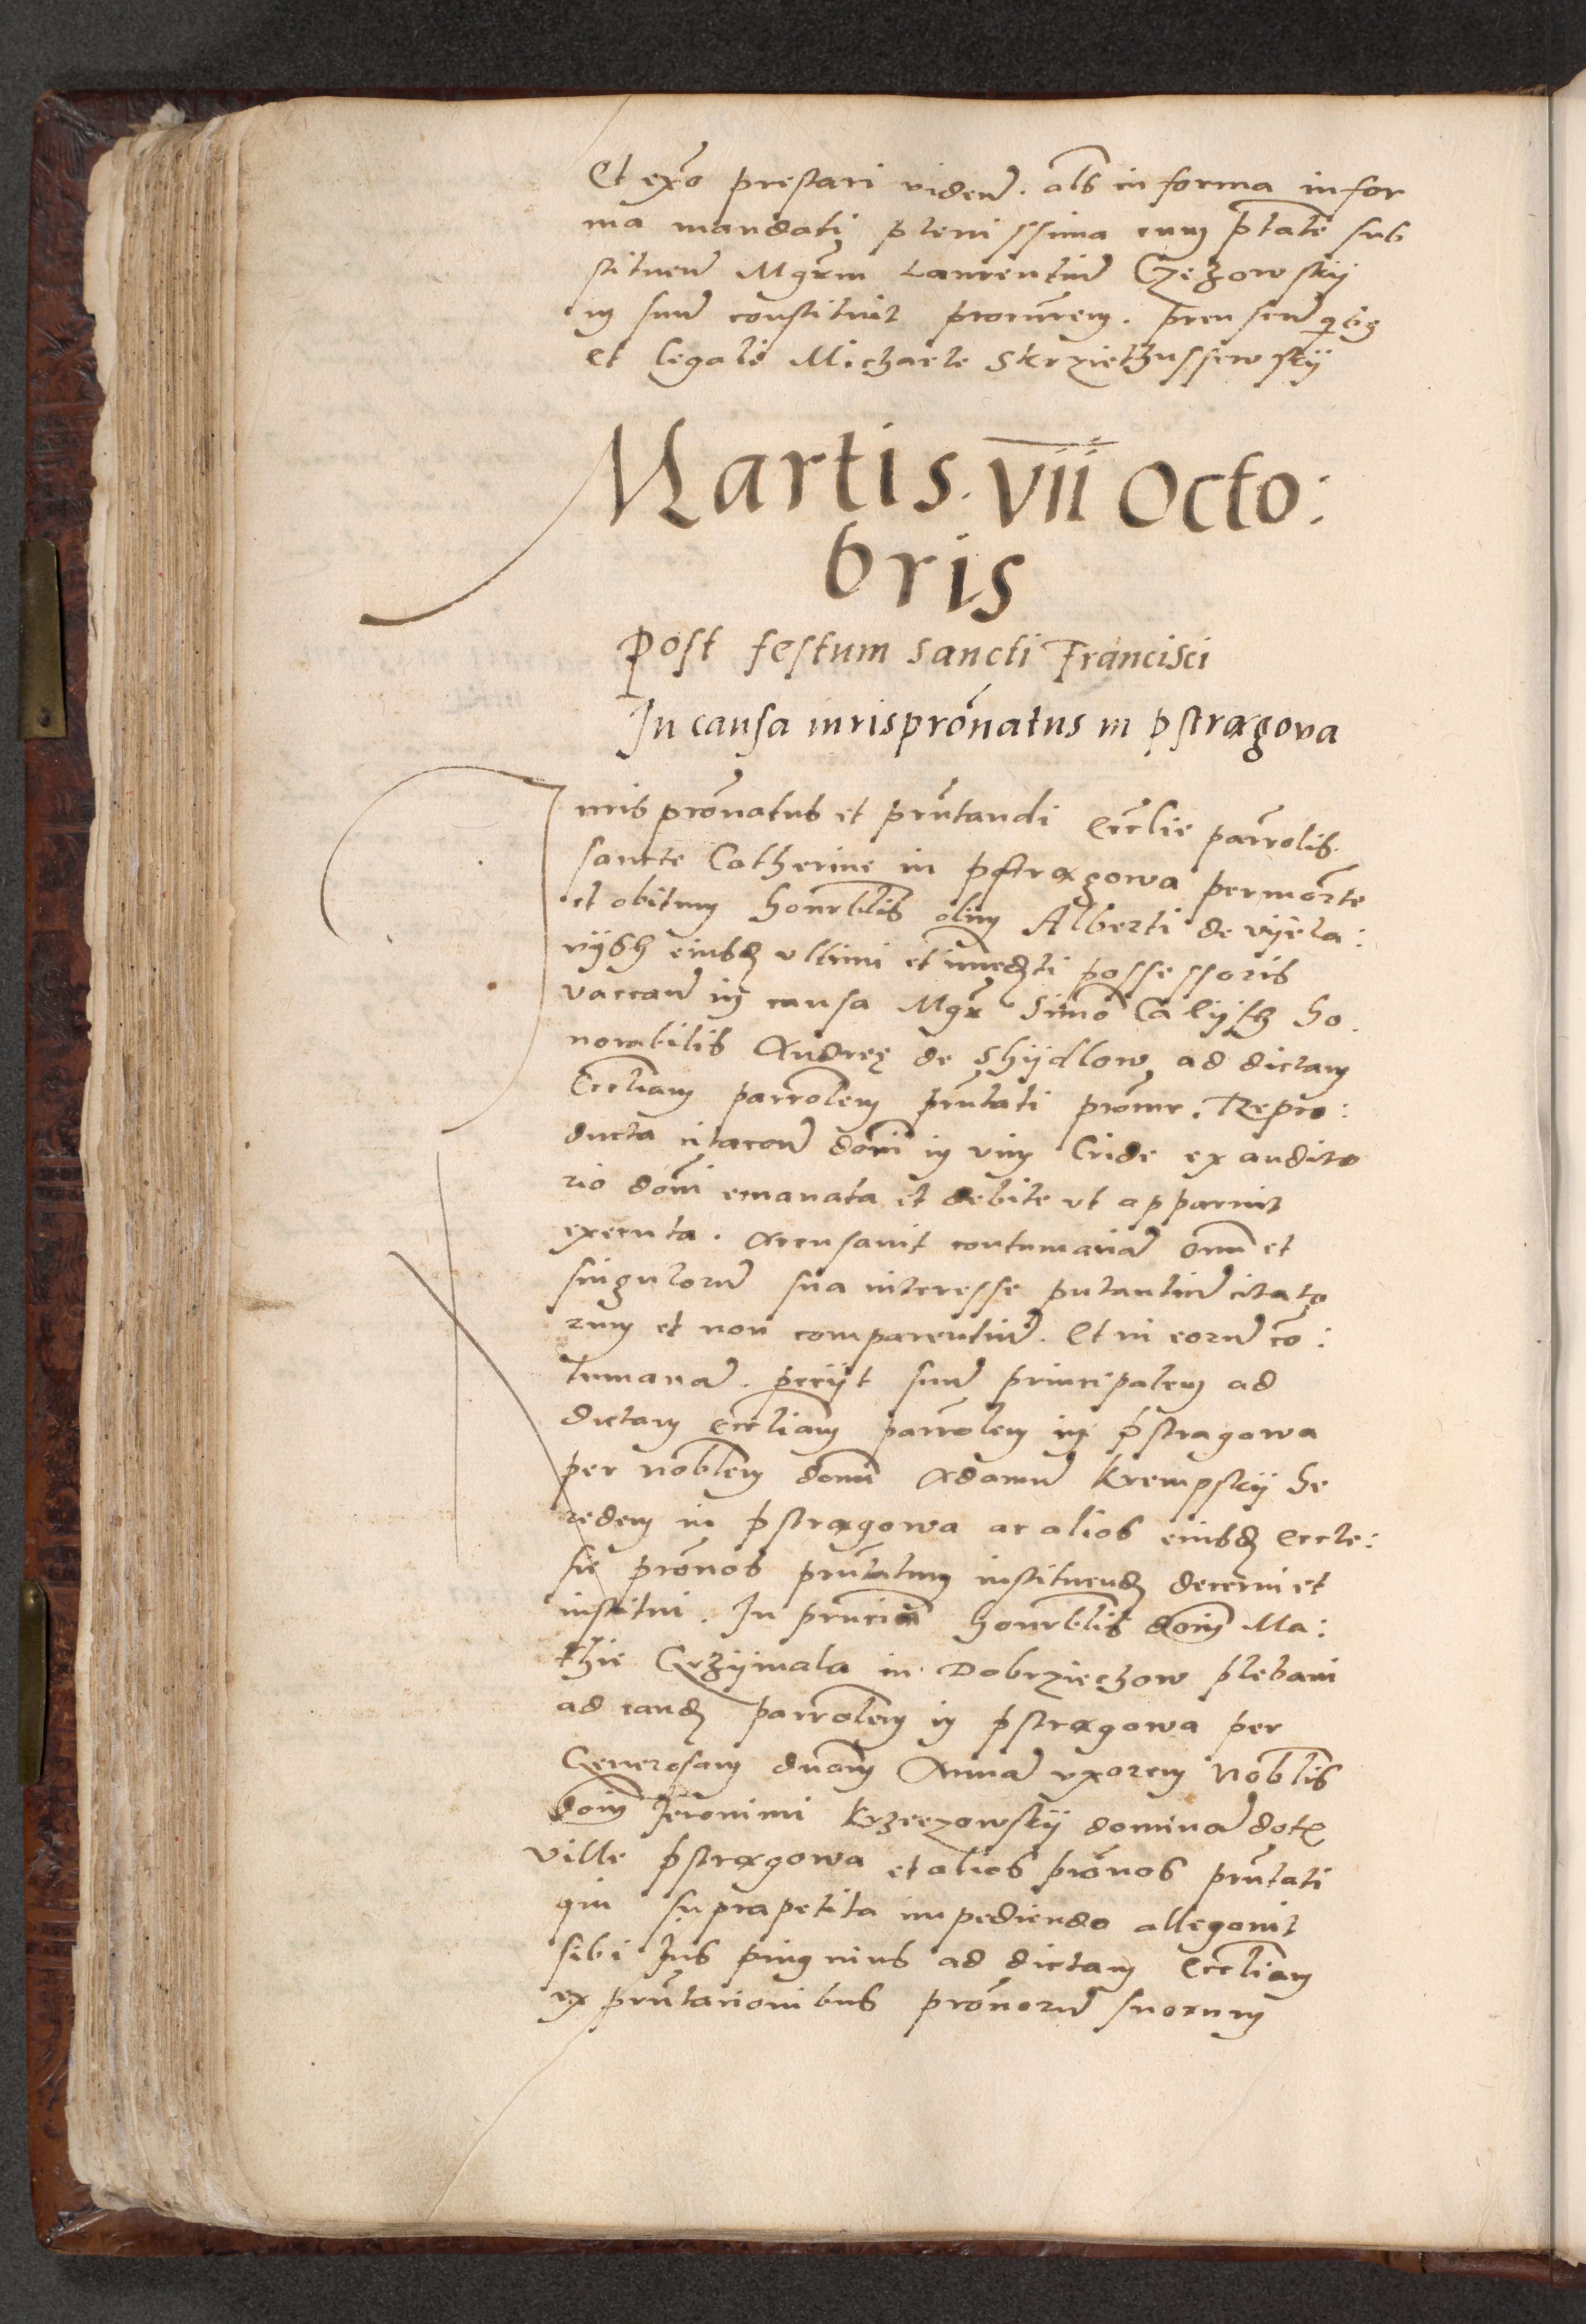 Et exno prestari viden. als in forma in for
ma mandati plenissima cum ptate sub
stituen Mgrm Laurentiu Czezowskÿ
in suu constituit procurrem. Pren
et legale Michaele Skrziethussewskÿ
Martis. VII Octo:
bris
Post festum Sancti Francisci
In causa iurispronatus in pstragova
Iuris pronatus et prntandi Ecclie parrolis.
sancte Catherine in pstragowa per morte
et obitum honrblis olim Alberti de vÿela:
eiusd ultimi et imediti possessoris
vaccan in causa Mgr Simo ho
norabilis Andreę de Shÿdlow ad dictam
Eccliam parrolem prntati procur. Repro:
ducta citacone domi in vim Cride ex audito
rio domi emanata et debite ut apparuit
executa. Accusavit contumacia omn et
singuloru sua interesse putantiu citato
rum et non comparentiu. Et in eoru co:
tumacia. peciit suu principalem ad
dictam eccliam parrolem in pstragowa
per noblem domu Adamu Krempskÿ he
redem in pstragowa ac alios eiusd eccle:
sie pronos prntatum instituend decerni et
institui. In prncia honrblis domi Ma:
thie Grzÿmala in Dobrziechow plebani
ad eand parrolem in pstragowa per
Generosam dnam Anna uxorem Noblis
domi Jeronimi Krzeczowskÿ domina dot
ville pstragowa et alios pronos prntati
qui suprapetita impediendo allegavit
sibi Jus pinguius ad dictam Eccliam
ex prntacionibus pronoru suorum